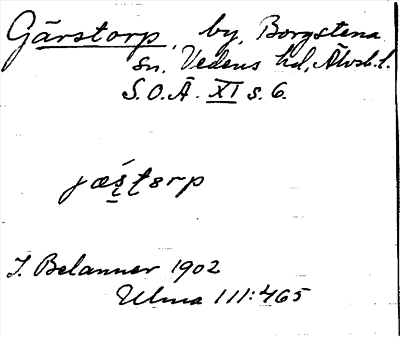 Gärstorp, by, Borgstena
sn, Vedens hd, Älvsb. l.
S.O.Ä. XI s. 6.
J. Belanner 1902
Ulma 111:465